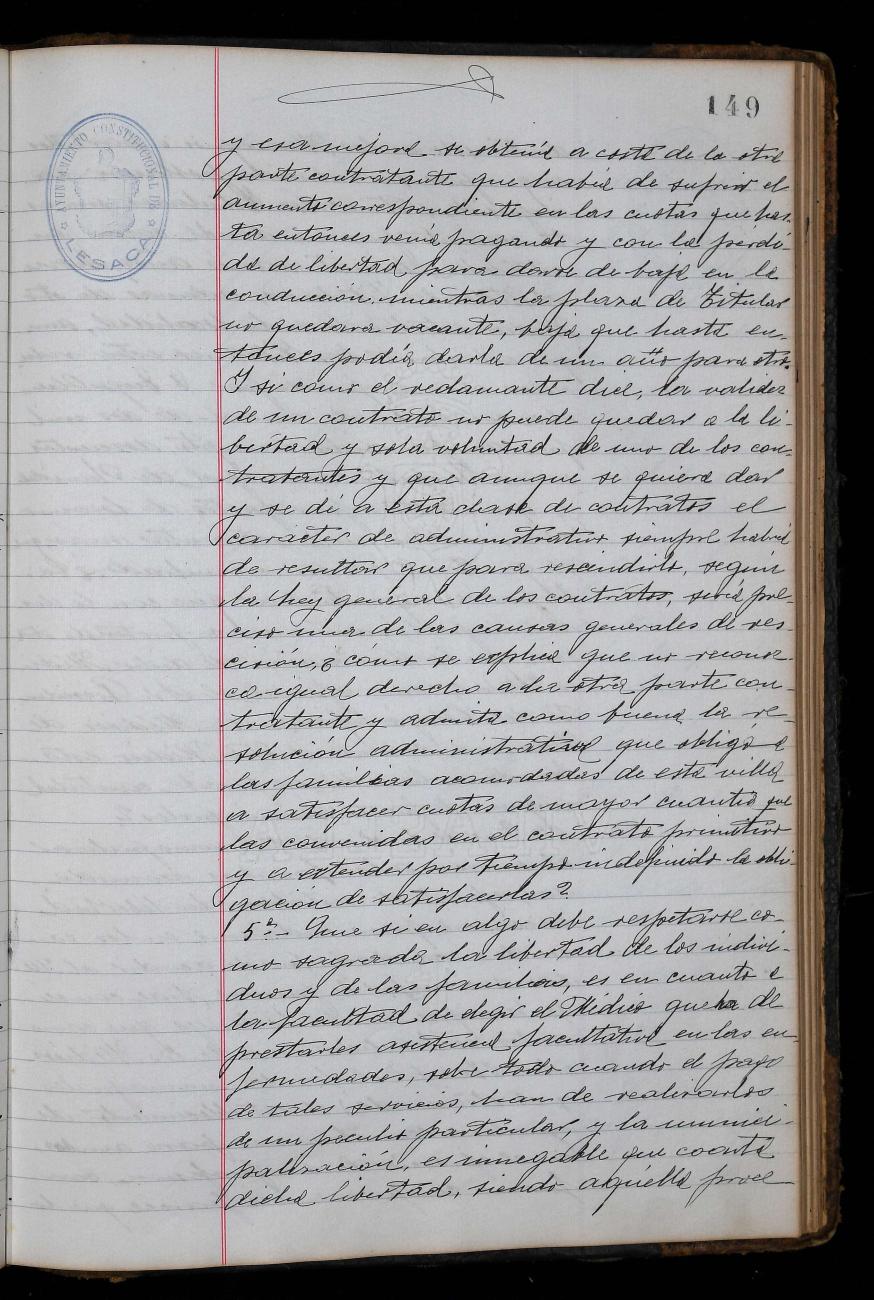 149
AYUNTAMIENTO CONSTITUCIONAL DE
LESACA
y esa mejora se obtenía a costa de la otra
parte contratante que había de sufrir el
aumento correspondiente en las cuotas que has-
ta entonces venía pagando y con la pérdi-
da de libertad para darse de baja en la
conducción, mientras la plaza de Titular
no quedara vacante, baja que hasta en-
tonces podía darla de un año para otro.
Y si como el reclamante dice, la validez
de un contrato no puede quedar a la li-
bertad y sola voluntad de uno de los con-
tratantes y que aunque se quiera dar
y se dé a esta clase de contratos el
carácter de administrativo siempre habrá
de resultar que para rescindirlo, según
la ley general de los contratos, sería pre-
ciso una de las causas generales de res-
cisión, ¿cómo se explica que no reconoz-
ca igual derecho a la otra parte con-
tratante y admita como buena la re-
solución administrativa que obligó a
las familias acomodadas de esta villa
a satisfacer cuotas de mayor cuantía que
las convenidas en el contrato primitivo
y a extender por tiempo indefinido la obli-
gación de satisfacerlas?
5º- Que si en algo debe respetarse co-
mo sagrada la libertad de los indivi-
duos y de las familias, es en cuanto a
la facultad de elegir el Médico que ha de
prestarles asistencia facultativa en las en-
fermedades, sobre todo cuando el pago
de tales servicios, han de realizarlos
de un peculio particular, y la munici-
palización, es innegable que coarta
dicha libertad, siendo aquélla proce